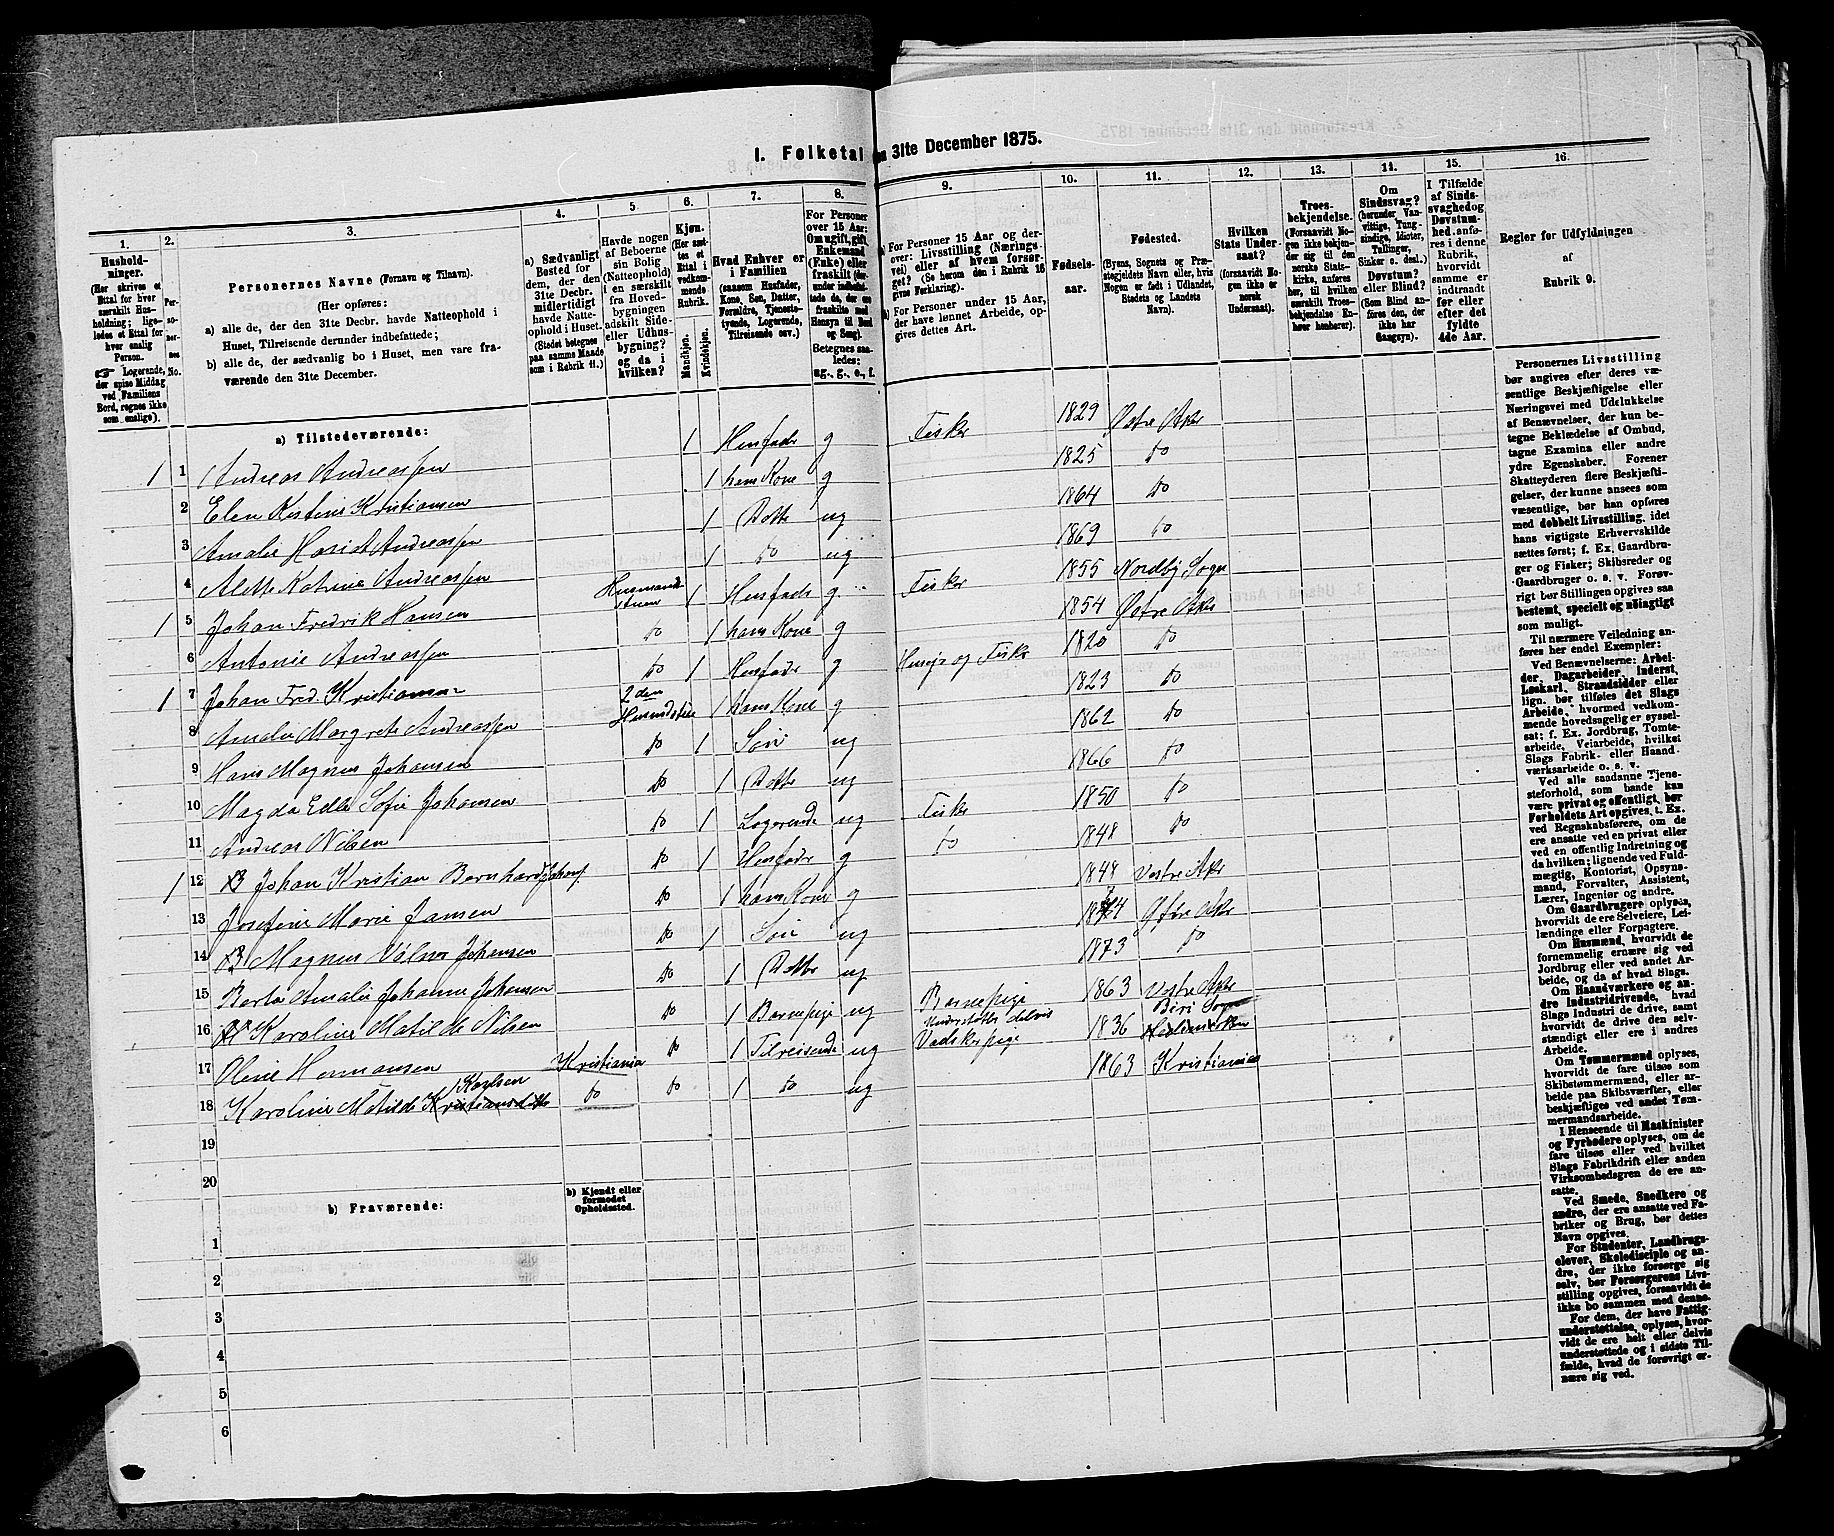 I. Folketal den 31te December 1875.
1.
2.
3.
4.
5.
6.
7.
8.
9.
10.
11.
12.
13.
14.
15.
16.
Husholdninger.
(Her skrives et Ettal for hver særskilt Husholdning; ligeledes et Ettal for hver enslig Person.
☞ Logerende, der spise Middag ved Familiens Bord, regnes ikke som enslige).
Personernes No.
Personernes Navne (Fornavn og Tilnavn).
(Her opføres:
a) alle de, der den 31te Decbr. havde Natteophold i Huset, Tilreisende derunder indbefattede;
b) alle de, der sædvanlig bo i Huset, men vare fraværende den 31te December.
a) Sædvanligt Bosted for dem, der den 31te Decbr. midlertidigt havde Natteophold i Huset. (Stedet betegnes paa samme Maade som i Rubrik 11.)
Havde nogen af Beboerne sin Bolig (Natteophold) i en særskilt fra Hovedbygningen adskilt Side- eller Udhusbygning? og da i hvilken?
Kjøn.
(Her sættes et Ettal i vedkommende Rubrik.
Mandkjøn.
Kvindekjøn.
Hvad Enhver er i Familien
(saasom Husfader, Kone, Søn, Datter, Forældre, Tjenestetyende, Logerende, Tilreisende osv.)
For Personer over 15 Aar: Om ugift, gift, Enkemand (Enke) eller fraskilt
Betegnes saaledes: ug., g., e., f.
For Personer 15 Aar og derover: Livsstilling (Næringsvei) eller af hvem forsørget? (Se herom den i Rubrik 16 givne Forklaring).
For Personer under 15 Aar, der have lønnet Arbeide, opgives dettes Art.
Fødselsaar.
Fødested.
(Byens, Sognets og Præstegjeldets Navn eller, hvis Nogen er født i Udlandet, Stedets og Landets Navn).
Hvilken Stats Undersaat?
(forsaavidt Nogen ikke er norsk Undersaat).
Troesbekjendelse.
(Forsaavidt Nogen ikke bekjender sig til den norske Statskirke, anføres her, til hvilken særskilt Troesbekjendelse Enhver henhører).
Om Sindssvag? (herunder Vanvittige, Tungsindige, Idioter, Tullinger, Sinker o. desl.) Døvstum? eller Blind? (Som Blind anføres den, der ikke har Gangsyn).
I Tilfælde af Sindssvaghed og Døvstumhed, anføres i denne Rubrik, hvorvidt samme er indtraadt før eller efter det fyldte 4de Aar.
Regler for Udfyldningen
af
Rubrik 9.
a) Tilstedeværende:
1 1 Andreas Andreassen 1 Husfader g Fisker 1829 Østre Aker
2 Elen Kistine Kristiansen 1 hans Kone g 1825 do
3 Amalie Andreassen 1 Datter ug 1864 do
4 Alette Katrine Andreassen 1 do ug 1869 do
1 5 Johan Fredrik Hansen 1 Husfader g Fisker 1855 Nordby Sogn
6 Antonie Andreassen do 1 hans Kone g 1854 Østre Aker
1 7 Johan Fred. Kristiansen do 1 Husfader g Husejer og Fisker 1820 do
8 Amalie Margrete Andreassen 2den 1 hans Kone g 1823 do
9 Hans Magnus Johansen do 1 Søn ug 1862 do
10 Magda Edle Sofie Johansen do 1 Datter ug 1866 do
11 Andreas Nilsen do 1 Logerende ug Fisker 1850 do
1 12 Johan Kristian Bernhard do 1 Husfader g do 1848 do
13 Josefine Marie Jansen do 1 hans Kone g 1848 Vestre Aker
14 Magnus Johansen do 1 Søn ug Østre Aker
15 Berta Amalie Johanne Johansen do 1 Datter ug 1873 do
16 Karoline Matilde Nilsen do 1 Barnepige ug Barnepige 1863 Vestre Aker
17 Oline Hermansen Kristiania do 1 Tilreisende ug Understøttes delvis Vadskerpige 1836 Biri Sogn
18 Karoline Matilde Karlsen do do 1 do ug 1863 Kristiania
19
20
b) Fraværende:
b) Kjendt eller formodet Opholdssted.
1
2
3
4
5
6
Personernes Livsstilling bør angives efter deres væsentlige Beskjæftigelse eller Næringsvei med Udelukkelse af Benævnelser, der kun betegne Beklædelse af Ombud, tagne Examina eller andre ydre Egenskaber. Forener Skatteyderen flere Beskjæftigelser, der kunne ansees som væsentlige, bør han opføres med dobbelt Livsstilling, idet hans vigtigste Erhvervskilde sættes først; f. Ex. Gaardbruger og Fisker; Skibsreder og Gaardbruger o. s. v. Forøvrigt bør Stillingen opgives saa bestemt, specielt og nøiagtigt som muligt.
Til nærmere Veiledning anføres her endel Exempler:
Ved Benævnelserne: Arbeider, Dagarbeider, Inderst, Løskarl, Strandsidder eller lign. bør tilføies det Slags Arbeide, hvormed vedkommende hovedsagelig er sysselsat; f. Ex. Jordbrug, Tomtearbeide, Veiarbeide, hvilket Slags Fabrik- eller Haandværksarbeide o. s. v.
Ved alle saadanne Tjenesteforhold, som baade kan være privat og offentligt, bør Forholdets Art opgives, t. Ex. ved Regnskabsførere, om de ere ansatte ved en privat eller ved en offentlig Indretning og da hvilken; lignende ved Fuldmægtig, Kontorist, Opsynsmand, Forvalter, Assistent, Lærer, Ingeniør og andre.
Om Gaardbrugere oplyses, hvorvidt de ere Selveiere, Leilændinge eller Forpagtere.
Om Husmænd, hvorvidt de fornemmelig ernære sig ved Jordbrug eller ved andet Arbeide, og da af hvad Slags.
Om Haandværkere og andre Industridrivende, hvad Slags Industri de drive, samt hvorvidt de drive den selvstændigt eller ere i andres Arbeide.
Om Tømmermænd oplyses, hvorvidt de fare tilsøs som Skibstømmermænd, eller arbeide paa Skibsværfter, eller beskjæftiges ved andet Tømmermandsarbeide.
I Henseende til Maskinister og Fyrbødere oplyses, om de fare tilsøs eller ved hvilket Slags Fabrikdrift eller anden Virksombedsgren de ere ansatte.
Ved Smede, Snedkere og andre, der ere ansatte ved Fabriker og Brug, bør dettes Navn opgives.
For Studenter, Landbrugselever, Skoledisciple og andre, der ikke forsørge sig selv, bør Forsørgerens Livsstilling opgives, forsaavidt de ikke bo sammen med denne.
For dem, der have Fattigunderstøttelse, oplyses, hvorvidt de ere helt eller delvis understøttede og i sidste Tilfælde, hvad de forøvrigt ernære sig ved.